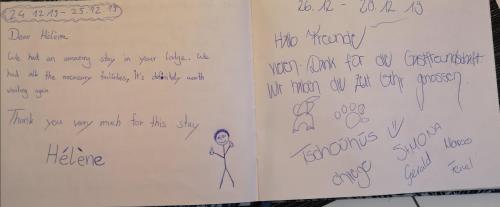 24.12.19 - 25.12.19
Dear Hélène
We had an amazing stay in your lodge. We
had all the necessary facilities, It's definitely worth
visiting again
Thank you very much for this stay
Hélène
26.12 - 28.12.19
Hallo Freunde
Vielen Dank für die Gastfreundschaft
Wir haben die Zeit sehr genossen.
Tschöühüs
SIMONA
Marco
Gerald